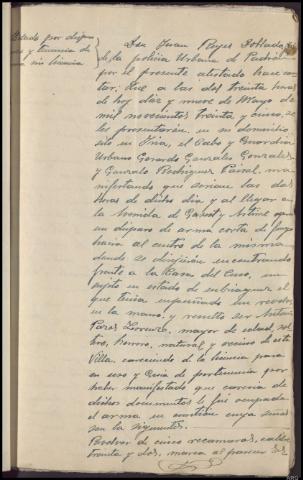 Atestado por disparo
y tenencia de
sin licencia
Don Juan Reyes Poblador
de la policia Urbana de Padrón
por el presente atestado hace cons
tar: Que a las dos treinta horas
de hoy diez y nueve de Mayo de
mil novecientos treinta y cinco, se
les presentaron en su domicilio,
sito en Iria, el Cabo y Guardia
Urbano Gerardo Gonzalez Gonzalez
y Gonzalo Rodriguez Paisal, ma
nifestando que serian las dos
horas de dicho dia y al llegar en
la Avenida de oyeron
un disparo de arma corta de fuego
hacia el centro de la misma
donde se dirigieron encontrando
frente a la Casa del Cura, un
sujeto en estado de embriaguez el
que tenia empuñado un revolver
en la mano, y resulto ser Antonio
Parez Lorenzo, mayor de edad, sol
tero, natural y vecino de esta
Villa, careciendo de la licencia para
su uso y Guia de pertenencia por
haber manifestado que carecia de
dichos documentos le fué ocupada
el arma en cuestion cuyas señas
son las siguientes:
Revolver de cinco recamaras, calibre
treinta y dos, marca al parecer